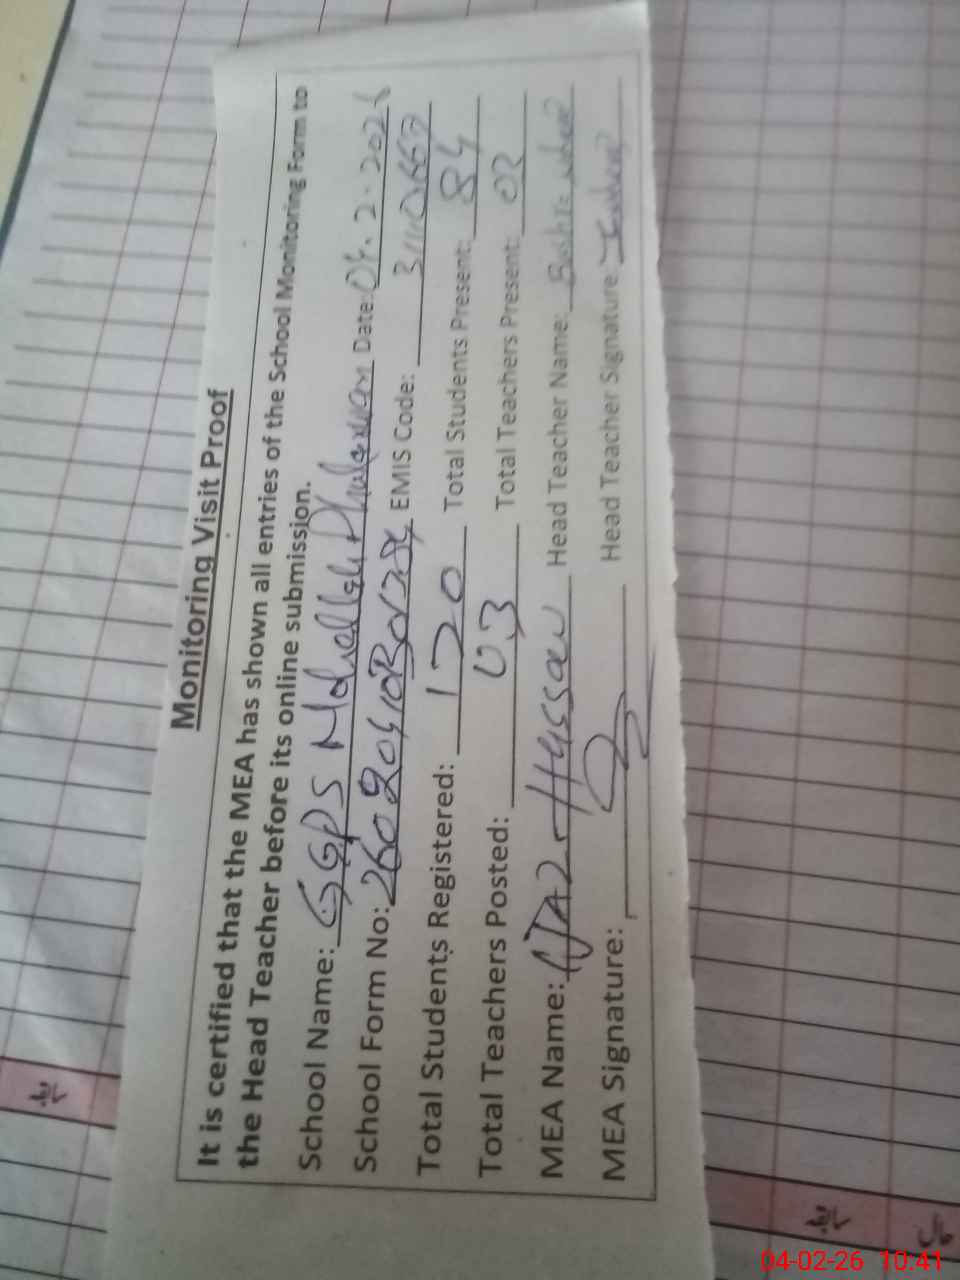 Monitoring Visit Proof
It is certified that the MEA has shown all entries of the School Monitoring Form to
the Head Teacher before its online submission.
School Name: GGPS Mohallah Date: 04.2.2026
School Form No: EMIS Code:
Total Students Registered: 120 Total Students Present: 84
Total Teachers Posted: 03 Total Teachers Present: 02
MEA Name: Hussain Head Teacher Name:
MEA Signature: Head Teacher Signature:
04-02-26 10:41